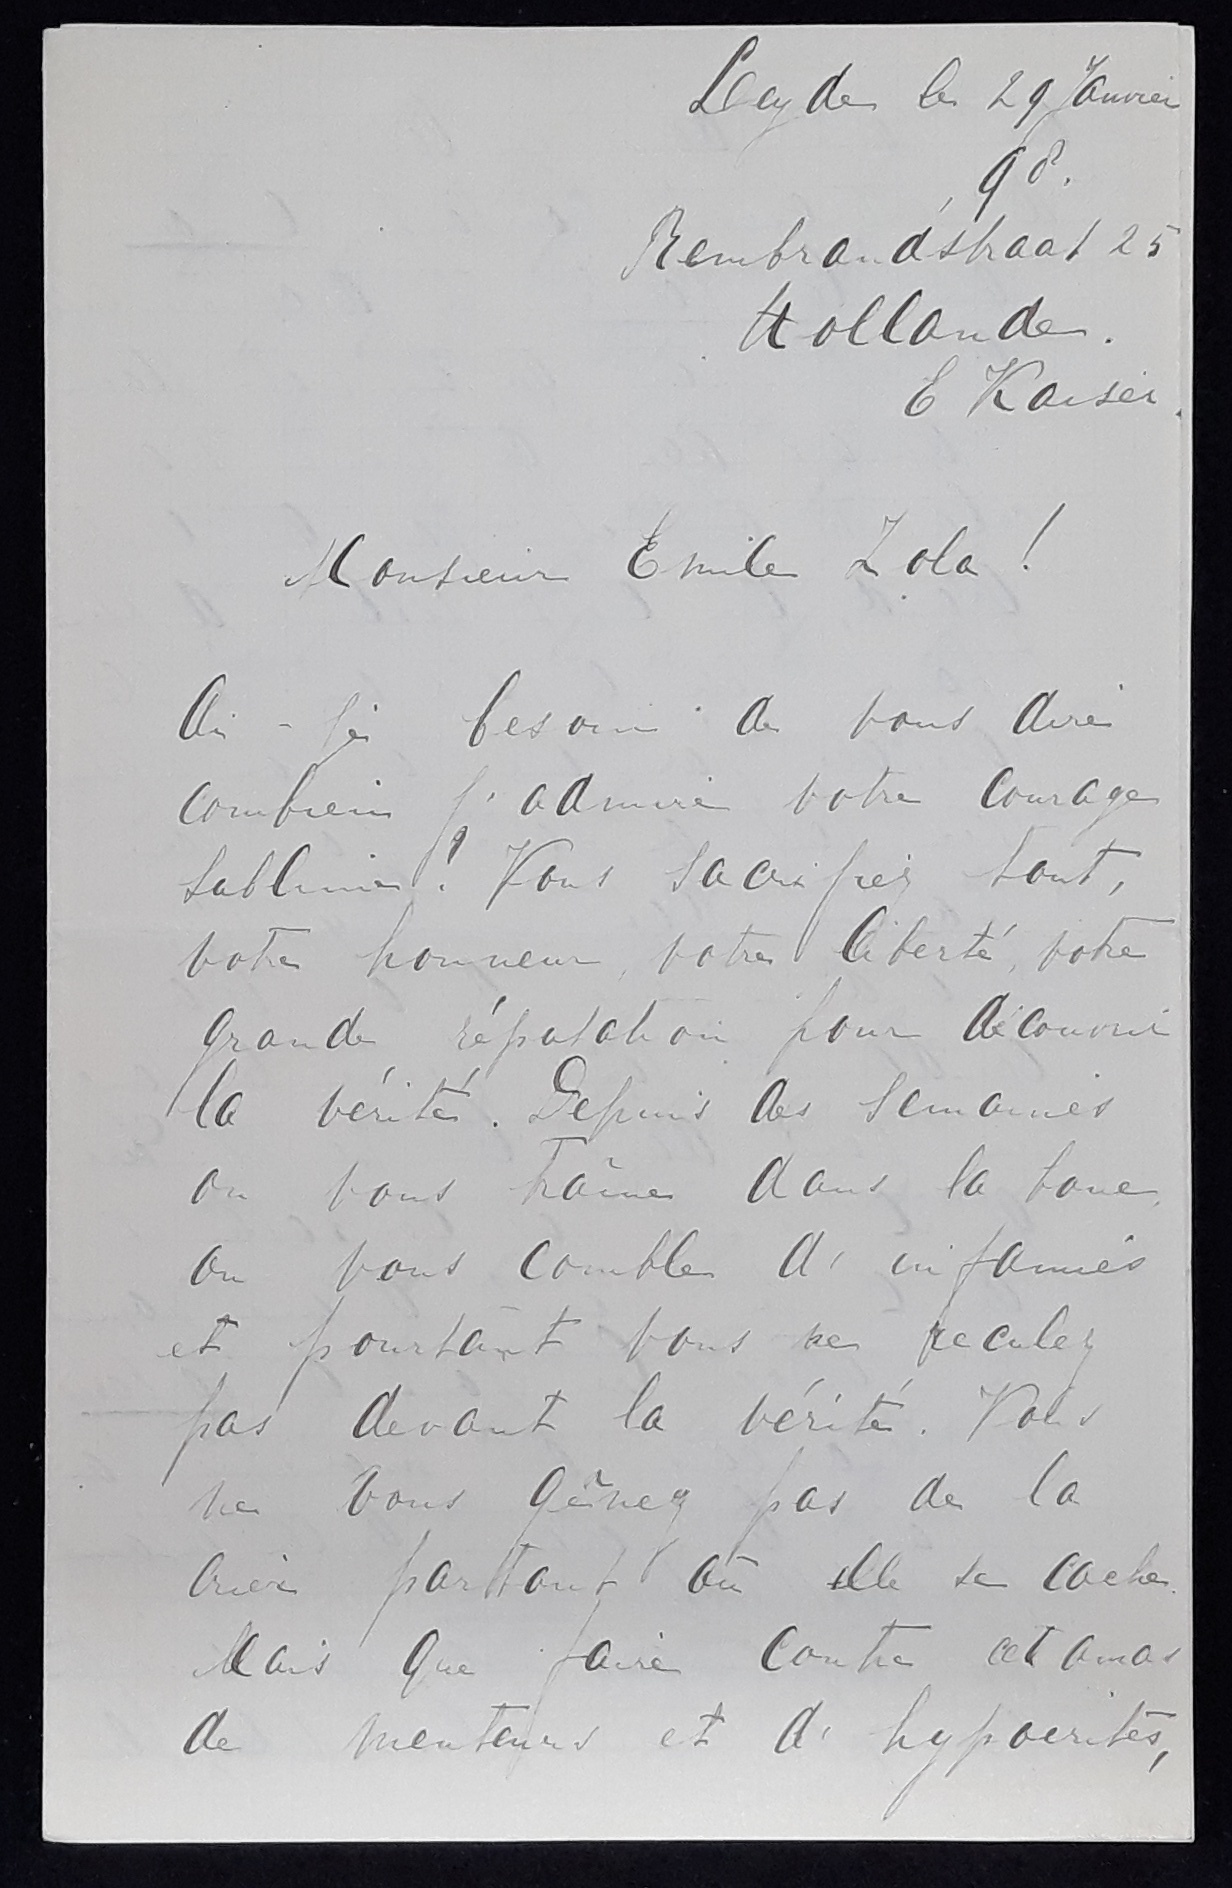 Leyde le 29 Janvier
98.
Rembrandstraat 25
Hollande.
E Kaiser.
Monsieur Emile Zola!
Ai-je besoin de vous dire
combien j'admire votre courage
sublime! Vous sacrifiez tout,
votre honneur, votre liberté, votre
grande réputation pour découvrir
la vérité. Depuis des semaines
on vous traîne dans la boue,
on vous comble d'infamies
et pourtant vous ne reculez
pas devant la vérité. Vous
ne vous gênez pas de la
crier partout où elle se cache.
Mais que faire contre cet amas
de menteurs et d'hypocrites,